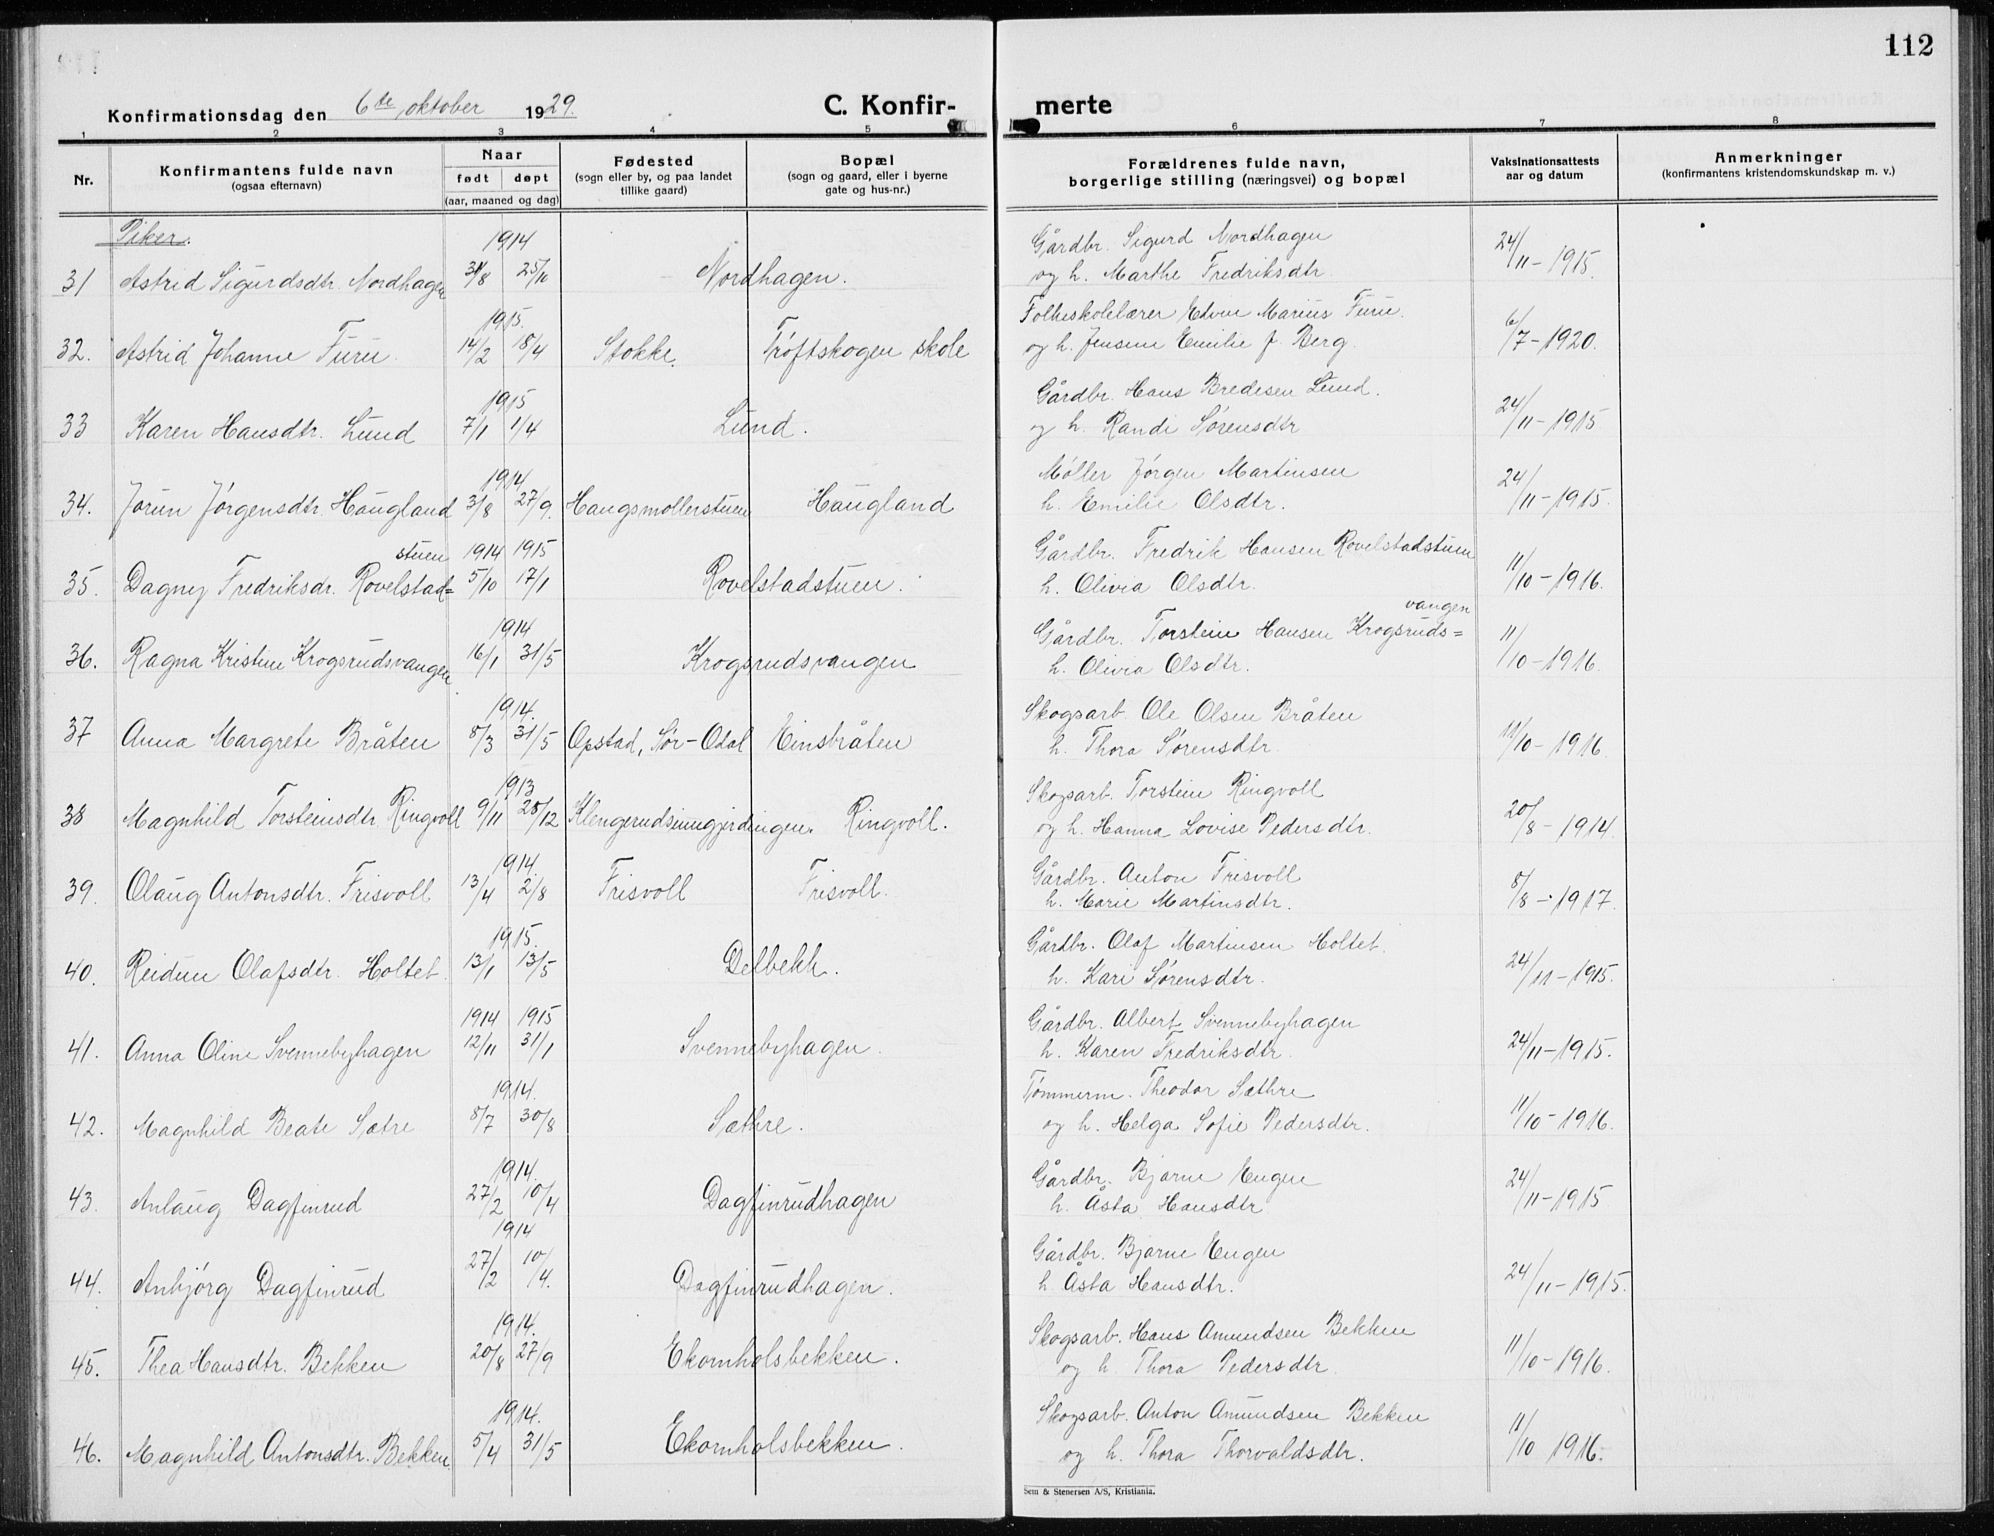 112
Konfirmationsdag den 6te oktober 1929.
C. Konfir- merte
1 2 3 4 5 6 7 8
Nr.
Konfirmantens fulde navn
(ogsaa efternavn)
Naar
født døpt
(aar, maaned og dag)
Fødested
(sogn eller by, og paa landet
tillike gaard)
Bopæl
(sogn og gaard, eller i byerne
gate og hus-nr.)
Forældrenes fulde navn,
borgerlige stilling (næringsvei) og bopæl
Vaksinationsattests
aar og datum
Anmerkninger
(konfirmantens kristendomskundskap m. v.)
Piker.
1914 Gårdbr. Sigurd Nordhagen 24/11-1915.
31 Astrid Sigurdsdtr. Nordhagen 31/8 25/10 Nordhagen. og h. Marthe Fredriksdtr.
1915. Folkeskolelærer Edvin Marius Furu.
32. Astrid Johanne Furu. 14/2 18/4 Stokke. Trøftskogen skole og h. Jensine Emilie f. Berg. 6/7-1920.
1915 Gårdbr. Hans Bredesen Lund.
33 Karen Hansdtr. Lund 7/1 1/4 Lund. og h. Randi Sørensdtr 24/11-1915
1914 Møller Jørgen Martinsen
34. Jorun Jørgensdtr. Haugland 31/8 27/9. Haugsmollerstuen Haugland h. Emilie Olsdtr. 24/11-1915.
stuen 1914 1915 Gårdbr. Fredrik Hansen Rovelstadstuen
35. Dagny Fredriksdr. Rovelstad= 5/10 17/1 Rovelstadstuen. h. Olivia Olsdtr. 11/10-1916.
vangen
1914 Gårdbr. Torstein Hansen Krogsruds=
36. Ragna Kristine Krogsrudsvangen 16/1 31/5 Krogsrudsvangen h. Olivia Olsdtr. 11/10-1916.
1914. Skogsarb. Ole Olsen Bråten
37 Anna Margrete Bråten 8/3 31/5 Opstad, Sør-Odal Einsbråten h. Thora Sørensdtr. 11/10-1916.
1913 Skogsarb. Torstein Ringvoll
38 Magnhild Torsteinsdtr. Ringvoll 9/11 28/12 Klengerudseiengjerdingen. Ringvoll. og h. Hanna Lovise Pedersdtr. 20/8-1914.
1914 Gårdbr. Anton Frisvoll
39. Olaug Antonsdtr. Frisvoll 13/4 2/8 Frisvoll Frisvoll. h. Marie Martinsdtr. 8/8-1917.
1915. Gårdbr. Olaf Martinsen Holtet.
40. Reidun Olafsdtr. Holtet. 13/1 13/5 Delbekk. h. Kari Sørensdtr. 24/11-1915.
1914 1915 Gårdbr. Albert Svennebyhagen
41. Anna Oline Svennebyhagen 12/11 31/1 Svennebyhagen. h. Karen Fredriksdtr. 24/11-1915.
1914. Tømmerm. Theodor Sæthre
42. Magnhild Beate Sætre 8/7 30/8 Sæthre. og h. Helga Sofie Pedersdtr. 11/10-1916.
1914. Gårdbr. Bjarne Engen
43. Anlaug Dagfinrud 27/2 10/4 Dagfinrudhagen h. Åsta Hansdtr 24/11-1915
1914 Gårdbr. Bjarne Engen
44. Anbjørg Dagfinrud 27/2 10/4. Dagfinrudhagen. h. Åsta Hansdtr. 24/11-1915.
1914. Skogsarb. Hans Amundsen Bekken
45. Thea Hansdtr. Bekken 20/8 27/9 Ekornholsbekken. og h. Thora Pedersdtr. 11/10-1916.
1914. Skogsarb. Anton Amundsen Bekken
46. Magnhild Antonsdtr. Bekken. 5/4 31/5 Ekornholsbekken. og h. Thora Thorvaldsdtr. 11/10 1916.
Sem & Stenersen A/S, Kristiania.